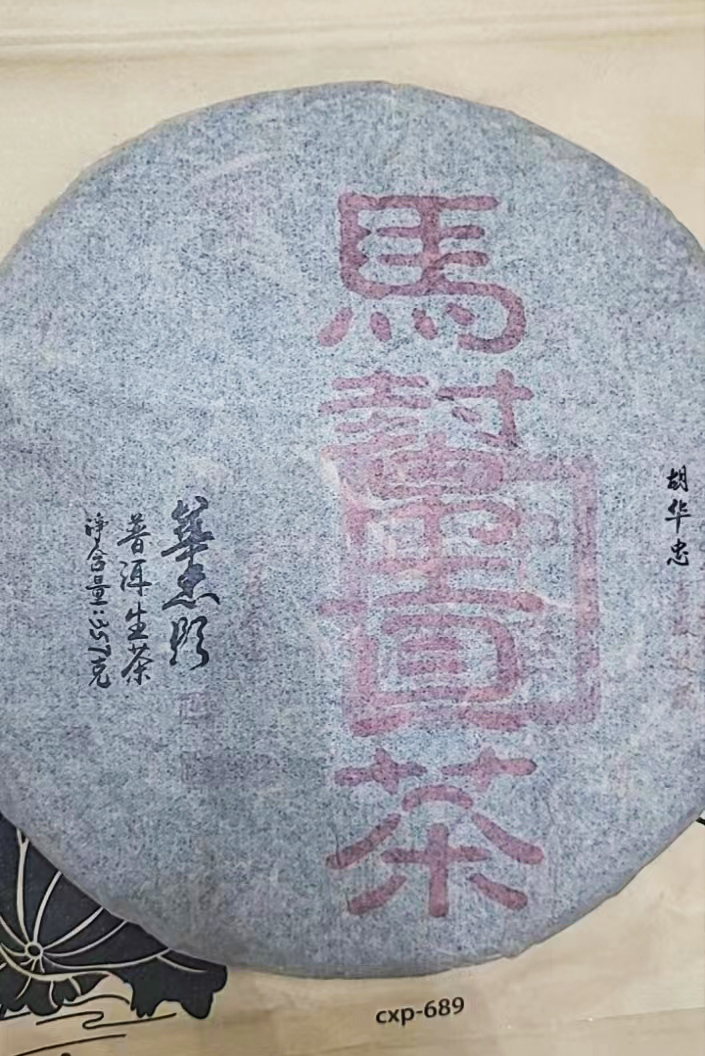 胡华忠
馬幫貢茶
華忠题
普洱生茶
净含量:357克
cxp-689